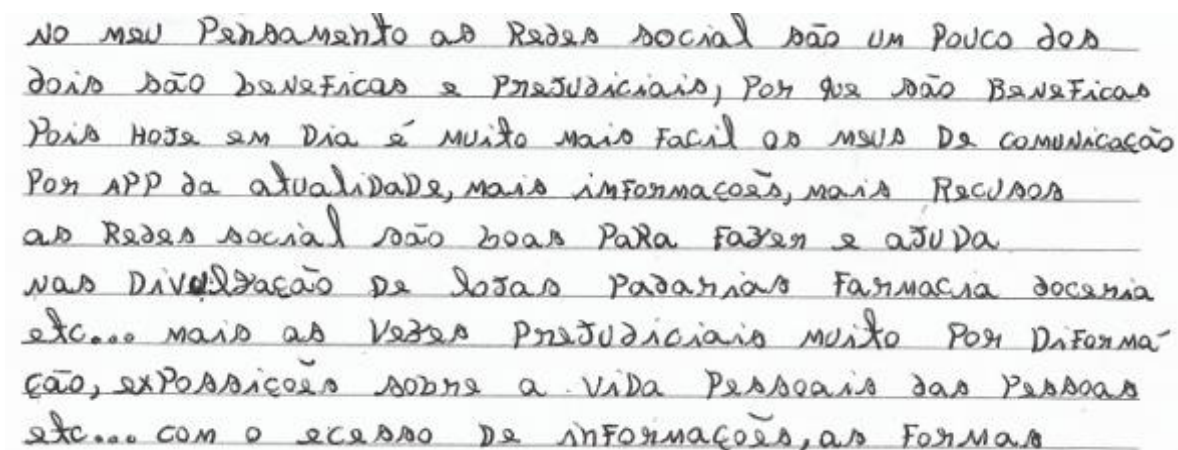 No meu Pensamento as Redes social são um Pouco dos
dois são beneficas e Prejudiciais, Por que são Beneficas
Pois Hoje em Dia é muito mais Facil os meus De comunicação
Por APP da atualidade, mais informacoēs, mais Recusos
as Redes social são boas Para Fazer e ajuda
nas Divulgação De lojas Padarias Farmacia doceria
etc... mais as Vezes Prejudiciais muito Por Diforma-
ção, exPossicoēs sobre a vida Pessoais das Pessoas
etc... com o ecesso De informacoēs, as Formas